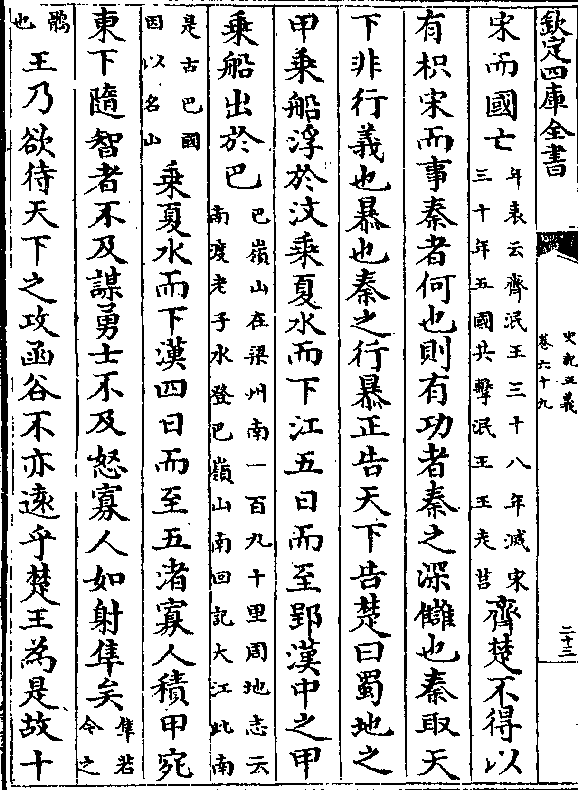 欽定四庫全書
史記正義
卷六十九
二十三
宋而國亡
年表云齊泯王三十八年滅宋
三十年五國共擊泯王王走莒
齊楚不得以
有枳宋而事秦者何也則有功者秦之深讎也秦取天
下非行義也暴也秦之行暴正告天下告楚曰蜀地之
甲乘船浮於汶乘夏水而下江五日而至郢漢中之甲
乘船出於巴
巴嶺山在梁州南一百九十里周地志云
南渡老子水登巴嶺山南回記大江此南
是古巴國
因以名山
乘夏水而下漢四日而至五渚寡人積甲宛
東下隨智者不及謀勇士不及怒寡人如射隼矣
隼若
今之
鶻
也
王乃欲待天下之攻函谷不亦遠乎楚王為是故十